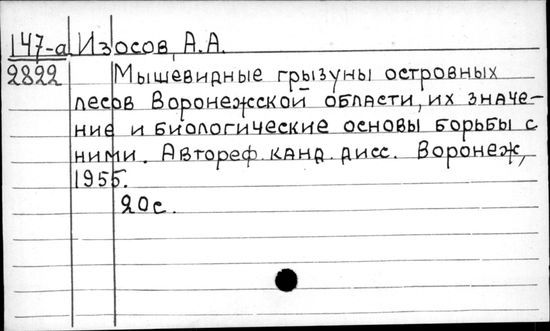 147-а Изосов, А.А.
2822 Мышевидные грызуны островных
лесов Воронежской области, их значе-
ние и биологические основы борьбы с
ними. Автореф. канд. дисс. Воронеж,
1955.
20с.